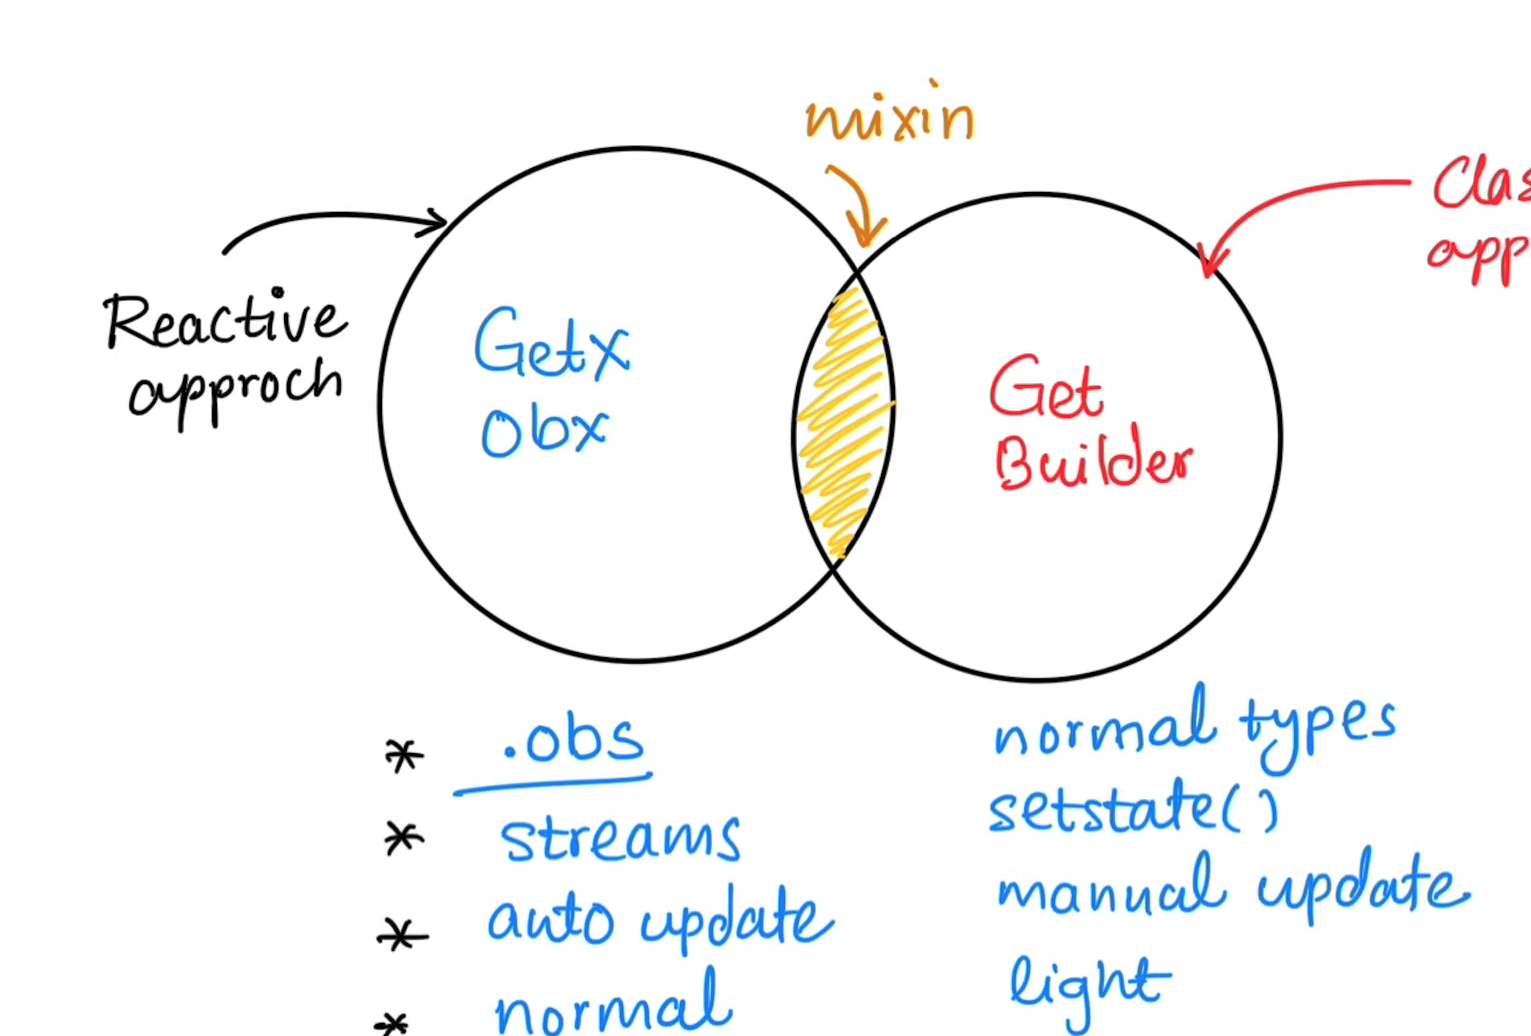 mixin
Reactive
approch
Getx
Obx
Get
Builder
* .obs
* streams
* auto update
* normal
normal types
setstate()
manual update
light